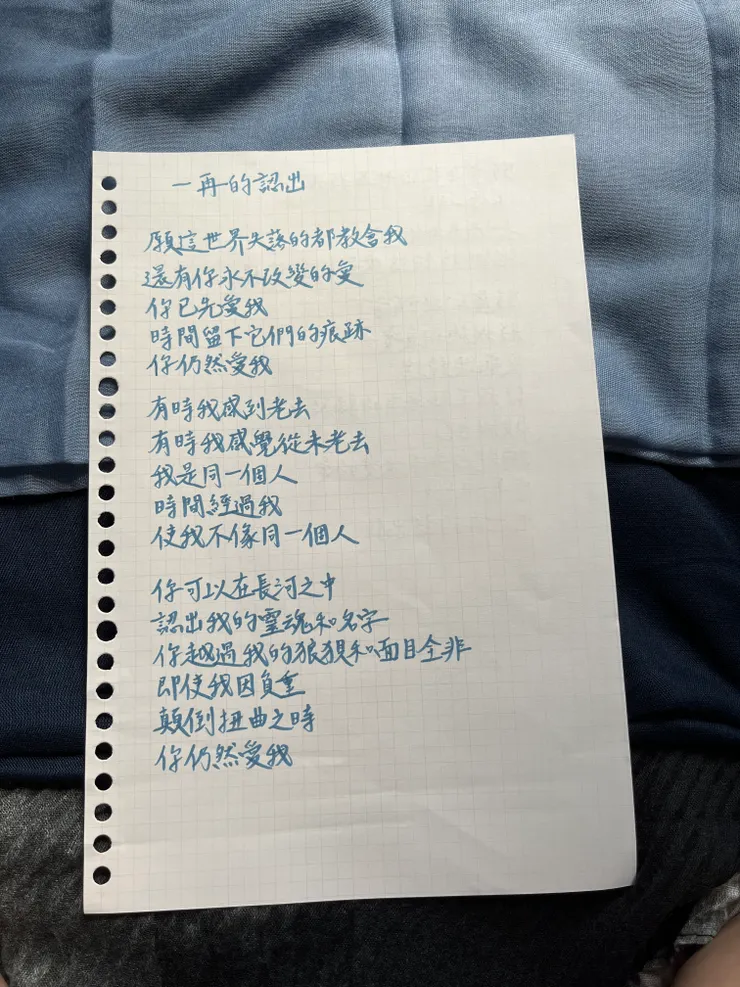 一再的認出
願這世界失落的都教會我
還有你永不改變的愛
你已先愛我
時間留下它們的痕跡
你仍然愛我
有時我感到老去
有時我感覺從未老去
我是同一個人
時間經過我
使我不像同一個人
你可以在長河之中
認出我的靈魂和名字
你越過我的狼狽和面目全非
即使我因負重
顛倒扭曲之時
你仍然愛我